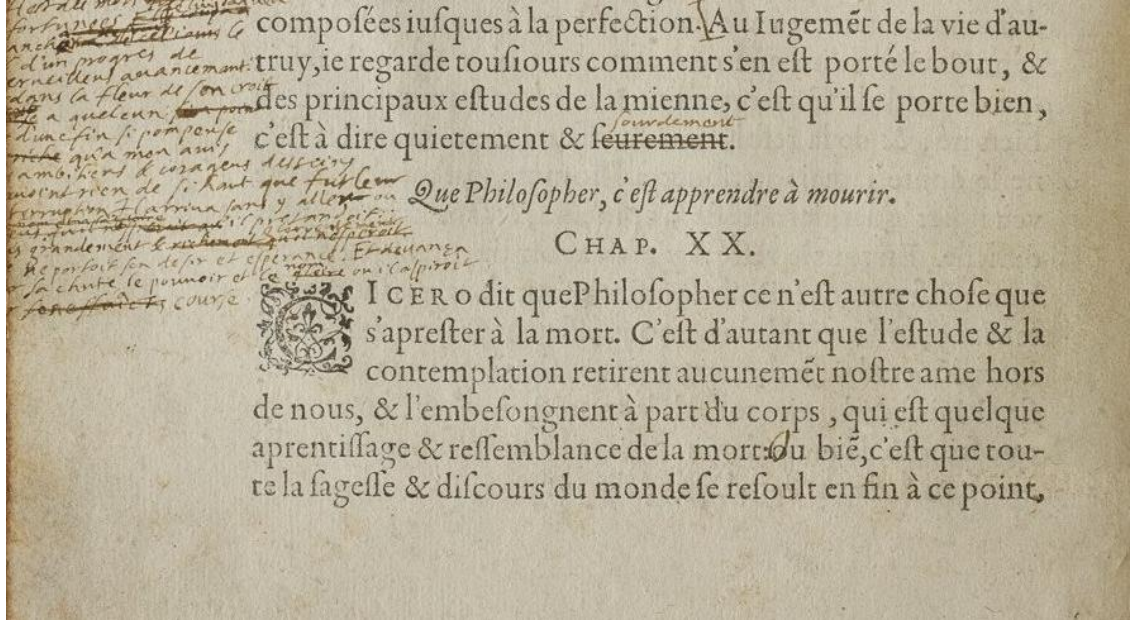 composées iuſques à la perfection. Au Iugemẽt de la vie d'au-
truy, ie regarde touſiours comment s'en eſt porté le bout, &
des principaux eſtudes de la mienne, c'eſt qu'il ſe porte bien,
sourdement
c'eſt à dire quietement & ſeurement.
Que Philoſopher, c'eſt apprendre à mourir.
CHAP. XX.
CICERO dit que Philoſopher ce n'eſt autre choſe que
s'apreſter à la mort. C'eſt d'autant que l'eſtude & la
contemplation retirent aucunemẽt noſtre ame hors
de nous, & l'embeſongnent à part du corps, qui eſt quelque
aprentiſſage & reſſemblance de la mort: Ou biẽ, c'eſt que tou-
te la ſageſſe & diſcours du monde ſe reſoult en fin à ce point,
d'un progres de
dans la fleur de son croit
a quelcun
d'une fin si pompeuse
qu'a mon avis
ambitieus & corageus desseins
rien de si haut que fut leur
interruption Il arriva sans y aller ou
il pretandoit
grandement &
ne portoit son desir et esperance. Et devança
sa chute le pouvoir et le nom ou il aspiroit
course